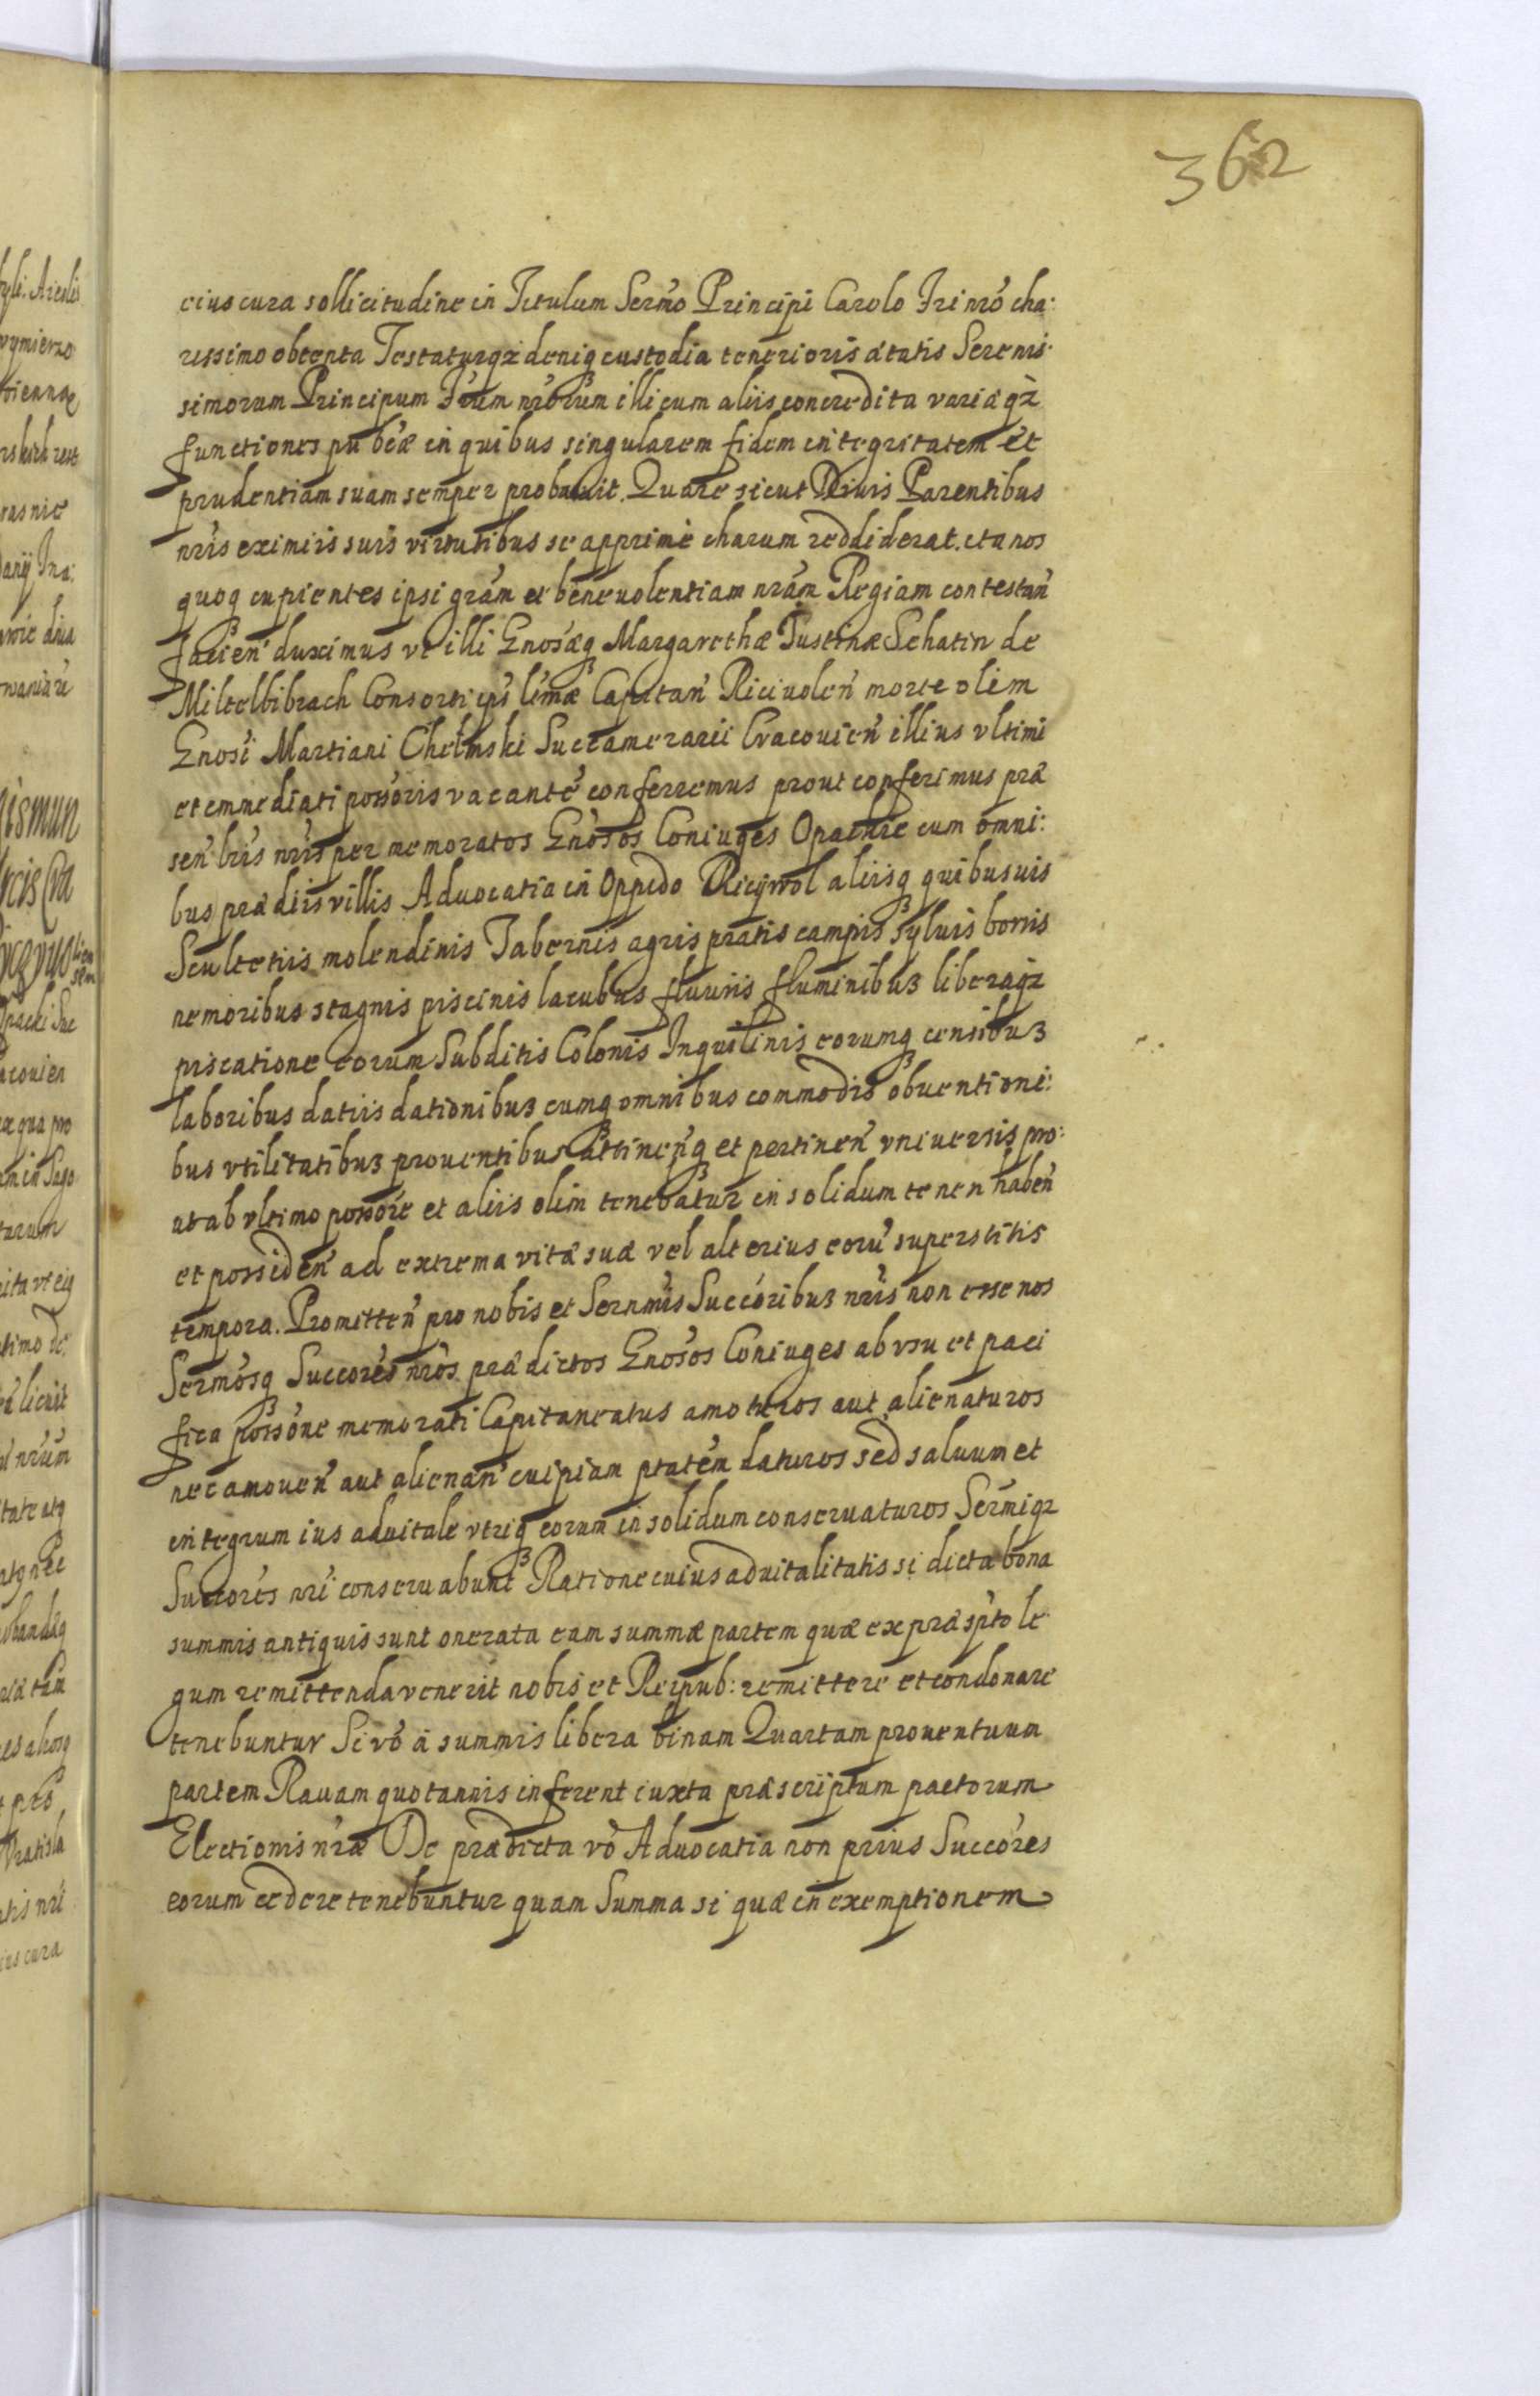 362
eius cura sollicitudine in Titulum Sermo Principi Carolo Fri nro cha:
rissimo obtenta Testaturqz deniq custodia tenerioris ætatis Serenis:
simorum Principum Frum nrorum illi cum aliis concredita variæqz
functiones pubcæ in quibus singularem fidem integritatem et
prudentiam suam semper probauit. Quare sicut Diuis Parentibus
nris eximiis suis virtutibus se apprime charum reddiderat. ita nos
quoq cupientes ipsi gram et beneuolentiam nram Regiam contestan
facien duximus vt illi Gnosæq Margarethæ Justinæ Schatin de
Mittelbibrach Consorti ips lrmæ Capitan Riciuolen morte olim
Gnosi Martiani Chełmski Succamerarii Cracouien illius vltimi
et emmediati possoris vacante conferremus prout conferimus præ
sen lris nris per memoratos Gnosos Coniuges Opackie cum omni:
bus prædiis villis Aduocatia in Oppido Ricijwol aliisq quibusuis
Scultetiis molendinis Tabernis agris pratis campis syluis borris
nemoribus stagnis piscinis lacubus fluuiis fluminibus liberaqz
piscatione eorum Subditis Colonis Inquilinis eorumq censibus
laboribus datiis dationibus cumq omnibus commodis obuentioni:
bus vtilitatibus prouentibus attinenq et pertinen vniuersis pro:
ut ab vltimo possore et aliis olim tenebatur in solidum tenen haben
et possiden ad extrema vitæ suæ vel alterius eoru superstitis
tempora. Promitten pro nobis et Sernmis Succoribus nris non esse nos
Sermosq Succores nros prædictos Gnosos Coniuges ab vsu et paci
fica possone memorati Capitaneatus amoturos aut alienaturos
nec amouen aut alienan cuipiam ptatem daturos sed saluum et
integrum ius aduitale vtriq eorum in solidum conseruaturos Sermiqz
Succores nri conseruabunt Ratione cuius aduitalitatis si dicta bona
summis antiquis sunt onerata eam summæ partem quæ ex præspto le
gum remittenda venerit nobis et Reipub: remittere et condonare
tenebuntur Si vo a summis libera binam Quartam prouentuum
partem Rauam quotannis inferent iuxta præscriptum pactorum
Electionis nræ De prædicta vo Aduocatia non prius Succores
eorum cedere tenebuntur quam Summa si quæ in exemptionem